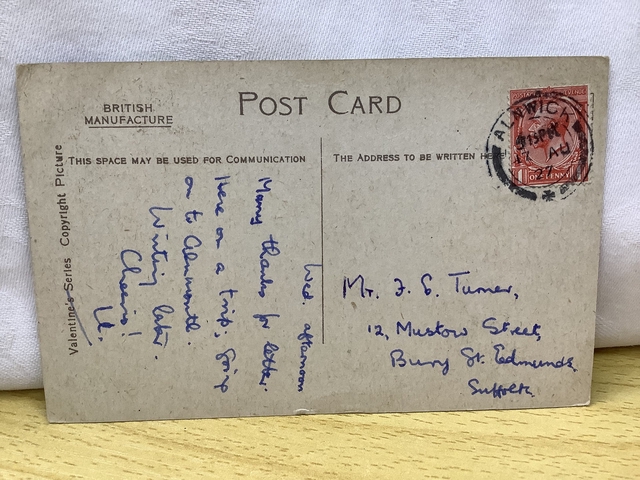 POST CARD
BRITISH
MANUFACTURE
THIS SPACE MAY BE USED FOR COMMUNICATION
THE ADDRESS TO BE WRITTEN HERE
Valentine's Series Copyright Picture
Wed. afternoon
Many thanks for letter.
Here on a trip, going
on to Alnmouth.
Writing later.
Cheerio!
Mr. F. S. Turner,
12, Mustow Street,
Bury St. Edmunds,
Suffolk
ALNWICK
AU
27
ONE PENNY